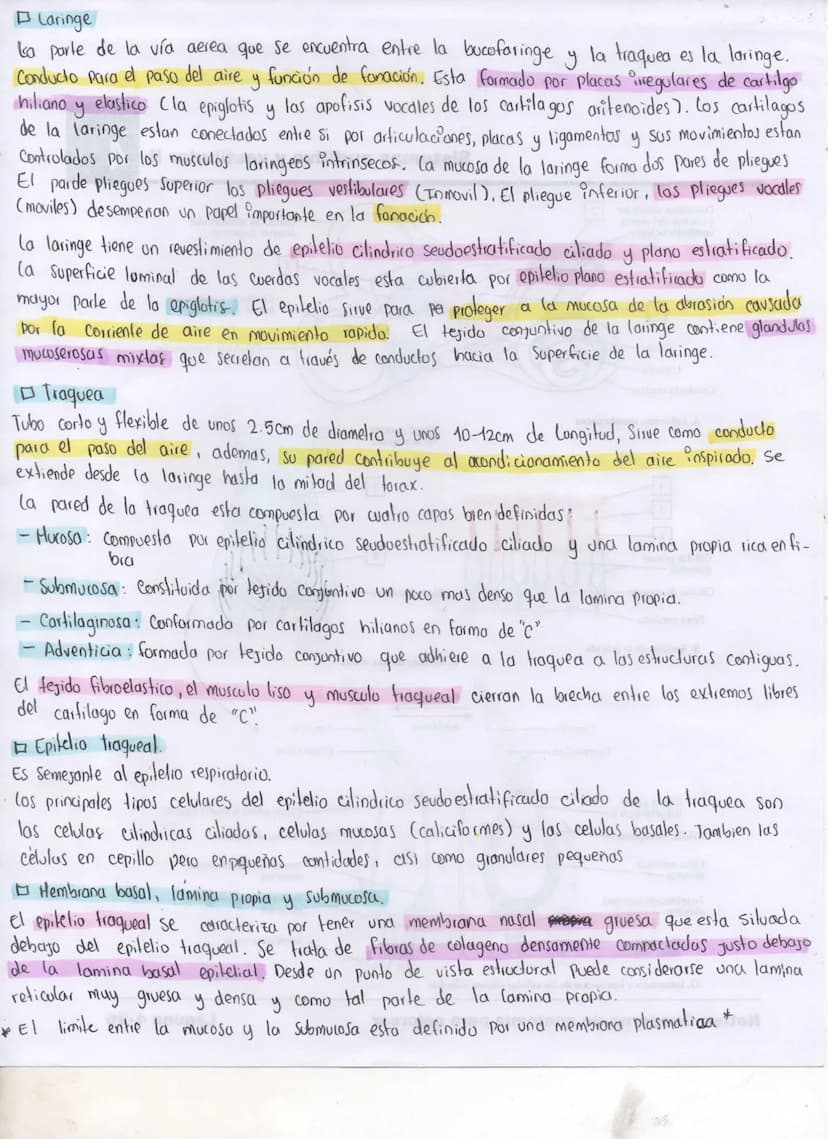 □ Laringe
La parte de la vía aerea que se encuentra entre la bucofaringe y la traquea es la laringe.
Conducto para el paso del aire y función de fonación. Esta formado por placas irregulares de cartilgo
hiliano y elastico (la epiglotis y las apofisis vocales de los cartilagos aritenoides). Los cartilagos
de la laringe estan conectados entre si por articulaciones, placas y ligamentos y sus movimientos estan
controlados por los musculos laringeos intrinsecos. La mucosa de la laringe forma dos pares de pliegues
El par de pliegues superior los pliegues vestibulares (Inmovil). El pliegue inferior, los pliegues vocales
(moviles) desempeñan un papel importante en la fonación.
La laringe tiene un revestimiento de epitelio cilindrico seudoestratificado ciliado y plano estratificado.
La superficie luminal de las cuerdas vocales esta cubierta por epitelio plano estratificado como la
mayor parte de la epiglotis. El epitelio sirve para pa proteger a la mucosa de la abrasión causada
por la corriente de aire en movimiento rapido. El tejido conjuntivo de la laringe contiene glandulas
mucoserosas mixtas que secretan a través de conductos hacia la superficie de la laringe.
□ Traquea
Tubo corto y flexible de unos 2.5cm de diametro y unos 10-12cm de Longitud, Sirve como conducto
para el paso del aire, ademas, su pared contribuye al acondicionamiento del aire inspirado. Se
extiende desde la laringe hasta la mitad del torax.
La pared de la traquea esta compuesta por cuatro capas bien definidas:
- Mucosa: Compuesta por epitelio cilindrico seudoestratificado ciliado y una lamina propia rica en fi-
bra
- Submucosa: Constituida por tejido conjuntivo un poco mas denso que la lamina propia.
- Cartilaginosa: Conformada por cartilagos hilianos en forma de "C"
- Adventicia: formada por tejido conjuntivo que adhiere a la traquea a las estructuras contiguas.
El tejido fibroelastico, el musculo liso y musculo traqueal cierran la brecha entre los extremos libres
del cartilago en forma de "C".
□ Epitelio traqueal.
Es semejante al epitelio respiratorio.
Los principales tipos celulares del epitelio cilindrico seudoestratificado ciliado de la traquea son
las celulas cilindricas ciliadas, celulas mucosas (caliciformes) y las celulas basales. Tambien las
células en cepillo pero en pqueñas cantidades, asi como granulares pequeñas
□ Membrana basal, lámina propia y submucosa.
El epitelio traqueal se caracteriza por tener una membrana nasal gruesa que esta situada
debajo del epitelio traqueal. Se trata de fibras de colageno densamente compactados justo debajo
de la lamina basal epitelial. Desde un punto de vista estructural puede considerarse una lamina
reticular muy gruesa y densa y como tal parte de la lamina propia.
* El limite entre la mucosa y la submucosa esta definido por una membrana plasmatica *